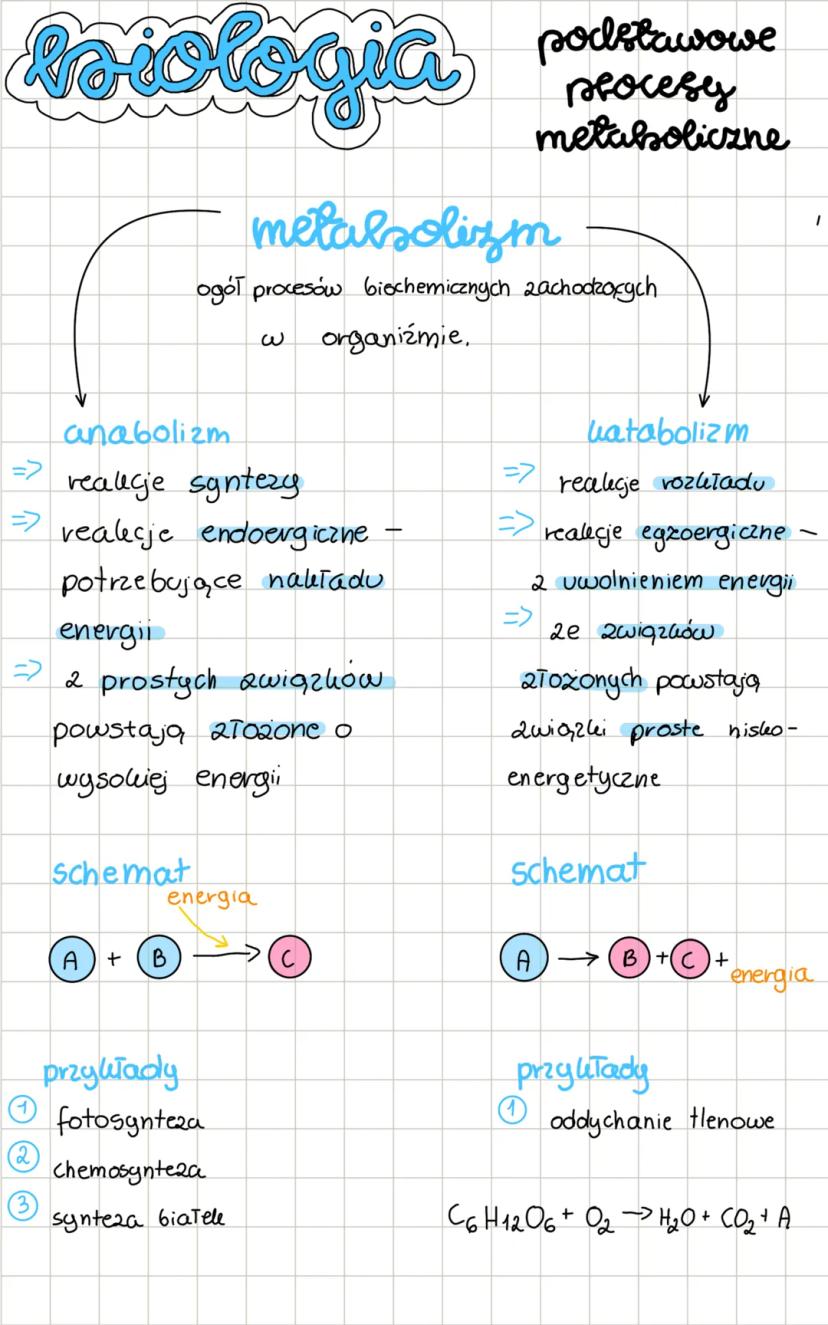 biologia
podstawowe
procesy
metaboliczne
metabolizm
ogół procesów biochemicznych zachodzących
w organiźmie.
anabolizm
=> reakcje syntezy
=> reakcje endoergiczne –
potrzebujące nakładu
energii
=> z prostych związków
powstają złożone o
wysokiej energii
schemat
energia
A + B → C
przykłady
1 fotosynteza
2 chemosynteza
3 synteza białek
katabolizm
=> reakcje rozkładu
=> reakcje egzoergiczne –
z uwolnieniem energii
=> ze związków
złożonych powstają
związki proste nisko-
energetyczne
schemat
A → B + C + energia
przykłady
1 oddychanie tlenowe
C₆H₁₂O₆ + O₂ → H₂O + CO₂ + A